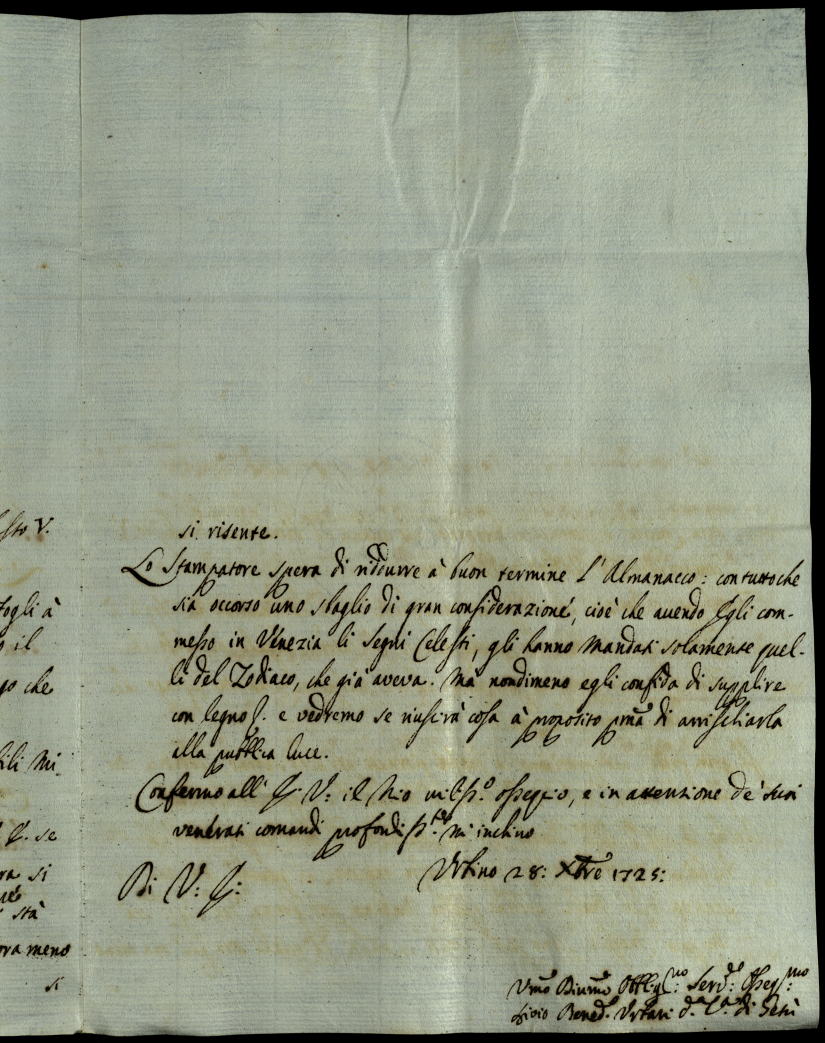 sto V.
fogli à
o il
po che
ili mi
E. se
ra si
stà
ora meno
si
si risente.
Lo Stampatore spera di ridurre à buon termine l'Almanacco: con tutto che
sia occorso uno sbaglio di gran considerazione, cioè che avendo Egli com-
messo in Venezia li Segni Celesti, gli hanno mandati solamente quel-
li del Zodiaco, che già aveva. Mà nondimeno egli confida di supplire
con legno e vedremo se riuscirà cosa à proposito pma di arrischiarla
alla pubblica luce.
Confermo all' E. V: il mio umilss.º ossequio, e in attenzione de' suoi
venerati comandi profondiss.te mi inchino
Di V: E:
Urbino 28: Xbre 1725:
Umo Divmo Obblig.mo Serv.: Osseq.mo:
Bened.